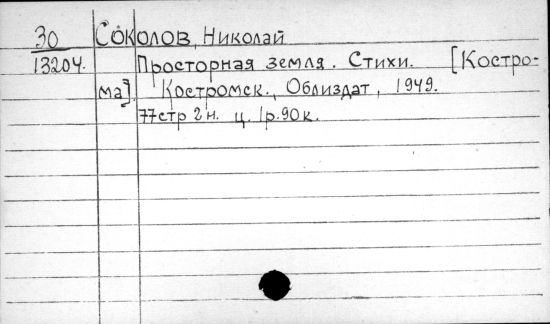 30 Соколов, Николай
13204. Просторная земля. Стихи. [Костро-
ма]. Костромск., Облиздат, 1949.
77стр 2н. ц. 1р.90к.